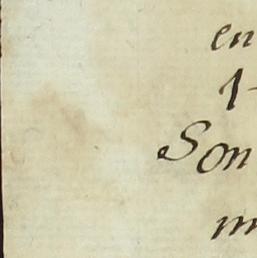 en
1
Son
m